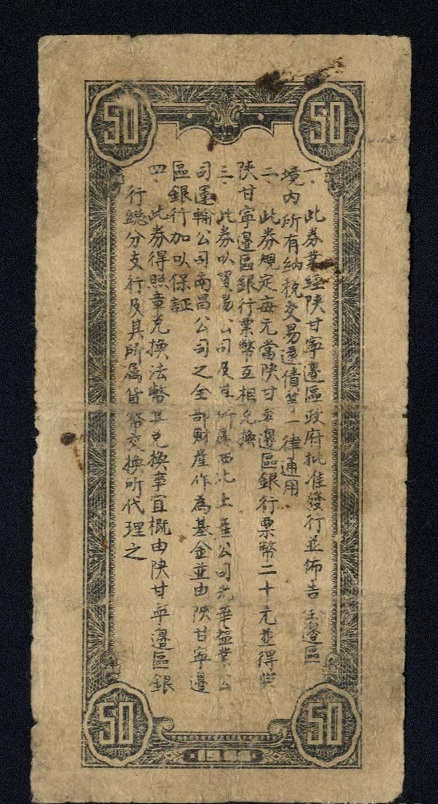 50
50
一、此券業經陝甘寧邊區政府批准發行並佈告全邊區
境內所有納稅交易還債等一律通用
二、此券規定每元當陝甘寧邊區銀行票幣二十元並得與
陝甘寧邊區銀行票幣互相兌換
三、此券以貿易公司及其所屬西北土產公司光華益業公
司運輸公司南昌公司之全部財產作為基金並由陝甘寧邊
區銀行加以保証
四、此券得照章兌換法幣其兌換事宜概由陝甘寧邊區銀
行總分支行及其所屬貨幣交換所代理之
50
50